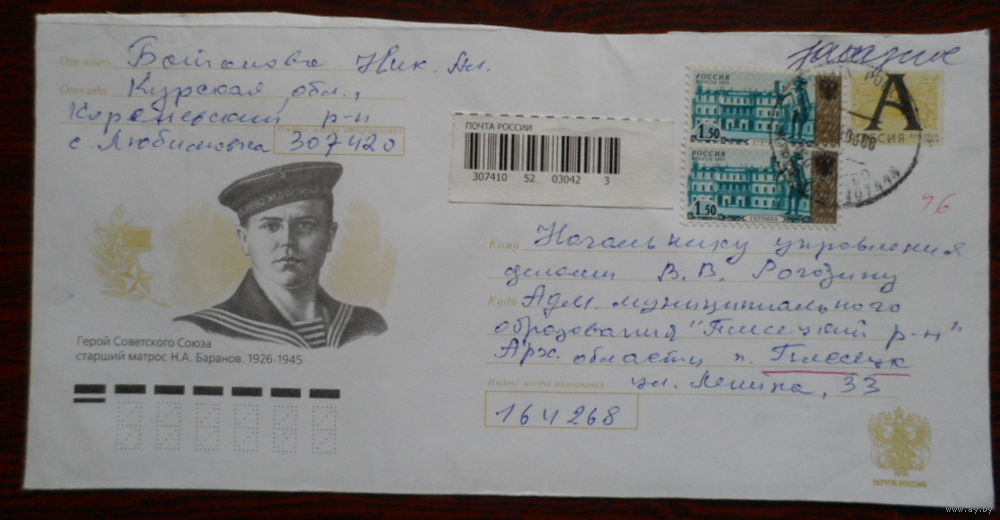 заказное
От кого Бойганова Ник. Ал.
Откуда Курская обл.,
Кореневский р-н
с. Любимовка 307420
ПОЧТА РОССИИ
307410 52 03042 3
РОССИЯ
1.50
РОССИЯ
1.50
ГАТЧИНА
А
РОССИЯ
96
Кому Начальнику управления
делами В. В. Рогозину
Куда Адм. муниципального
образования "Плесецкий р-н"
Арх. области п. Плесецк
ул. Ленина, 33
Индекс места назначения
164268
Герой Советского Союза
старший матрос Н.А. Баранов. 1926-1945
ПОЧТА РОССИИ
www.ay.by